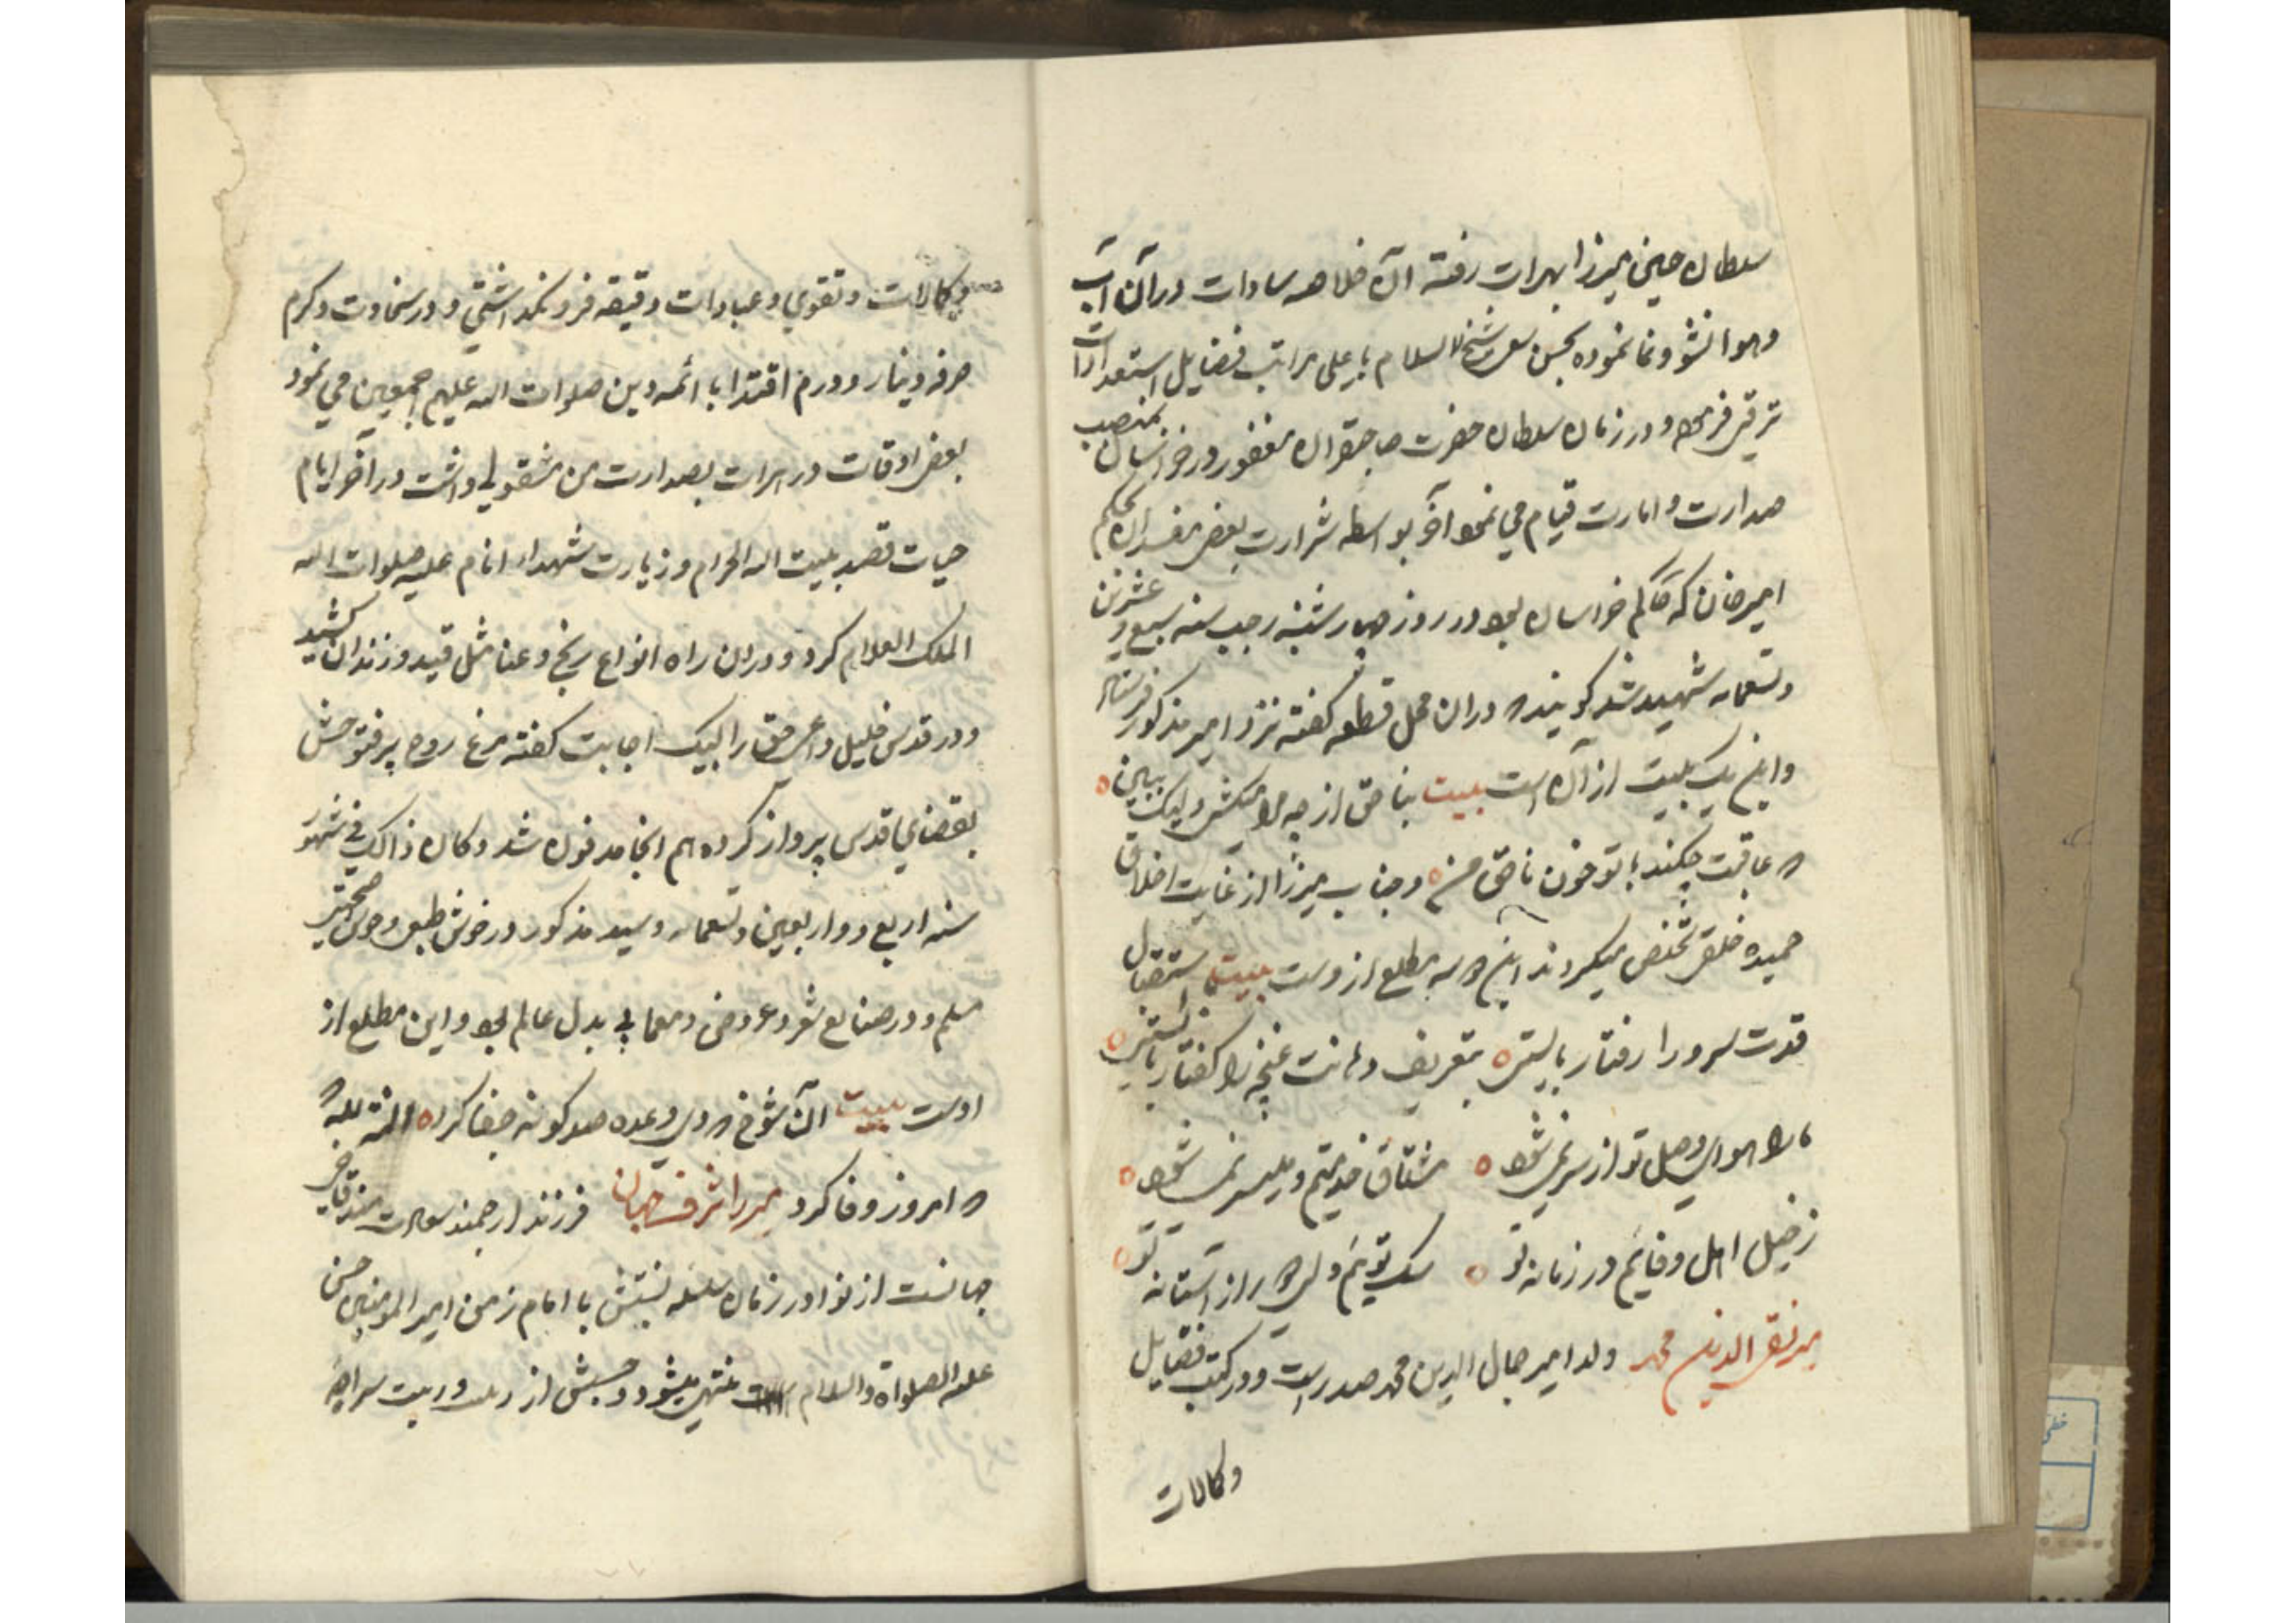 سلطان حسین میرزا بهرات رفته آن خلاصه سادات در آن آب
و هوا نشو و نما نموده بحسن سعی شیخ الاسلام باعلی مراتب فضایل استعدادات
ترقی فرمود و در زمان سلطان حضرت صاحبقران مغفور در خراسان بمنصب
صدارت و امارت قیام می نمود آخر بواسطه شرارت بعضی مفسدان بحکم
امیرخان که حاکم خراسان بود در روز چهارشنبه رجب سنه سبع و عشرین
و تسعمایه شهید شد گویند که در ان محل قطعه گفته نزد امیر مذکور فرستاد
و این یک بیت از آن است بیت بناحق از چه مرا میکشی ولیک ببین
که عاقبت چکند با تو خون ناحق من و جناب میرزا از غایت اخلاق
حمیده خلقی تخلص میکردند این سه مطلع ازوست بیت باستقبال
قدت سرو را رفتار بایستی بتعریف دهانت غنچه را گفتار بایستی
ما را هوای وصل تو از سر نمیشود مشتاق خدمتیم و میسر نمیشود
ز خیل اهل وفایم در زمانه تو سگ توئیم ولی از آستانه تو
میر تقی الدین محمد ولد امیر جمال الدین محمد صدر است و در کسب فضایل
وکالات
وکالات و تقوی و عبادات دقیقه فرو نگذاشتی و در سخاوت و کرم
صرف دینار و درم اقتدا با ائمه دین صلوات الله علیهم اجمعین می نمود
بعضی اوقات در هرات بصدارت من مشغولی داشت در آخر ایام
حیات قصد بیت الله الحرام و زیارت شهداء انام علیه صلوات الله
الملک العلام کرد و در ان راه انواع رنج و عنا مثل قید و زندان کشید
و در قدس خلیل داعی حق را لبیک اجابت گفته مرغ روح پر فتوحش
بفضای قدس پرواز کرده هم انجا مدفون شد و کان ذالک فی شهور
سنه اربع و اربعین و تسعمایه و سید مذکور در خوش طبعی و حسن صحبتی
مسلم و در صنایع شعر و عروض و معما بی بدل عالم بود و این مطلع از
اوست بیت آن شوخ که دی وعده صد گونه جفا کرد المنة لله
که امروز وفا کرد میرزا شرف جهان فرزند ارجمند سعادتمند قاضی
جهانست از نوادر زمان سلسله نسبتش با امام زمن امیر المومنین حسن
علیه الصلواة والسلام منتهی میشود و حسبش از